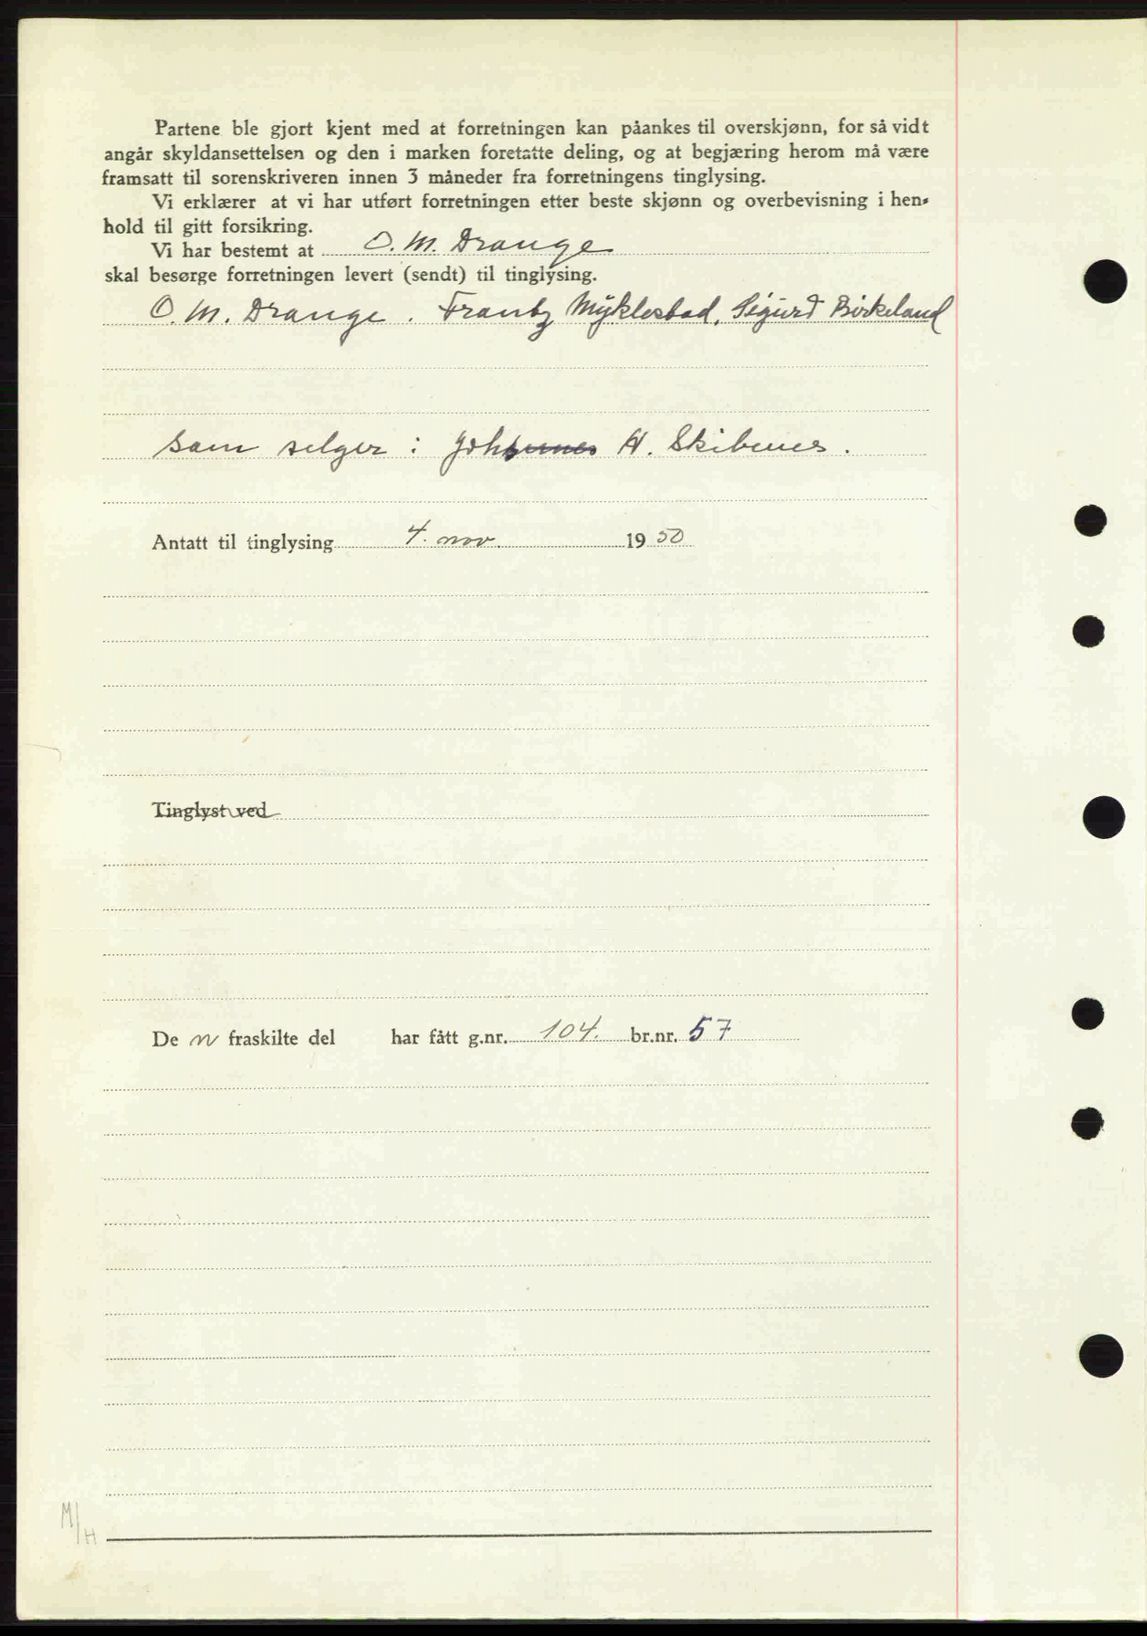 Partene ble gjort kjent med at forretningen kan påankes til overskjønn, for så vidt
angår skyldansettelsen og den i marken foretatte deling, og at begjæring herom må være
framsatt til sorenskriveren innen 3 måneder fra forretningens tinglysing.
Vi erklærer at vi har utført forretningen etter beste skjønn og overbevisning i hen-
hold til gitt forsikring.
Vi har bestemt at O. M. Drange
skal besørge forretningen levert (sendt) til tinglysing.
O. M. Drange. Frantz Myklestad, Sigurd Birkeland
som selger: Johannes H. Skibenes.
Antatt til tinglysing 4. nov. 1950
Tinglyst ved
De n fraskilte del har fått g.nr. 104. br.nr. 57
M/H